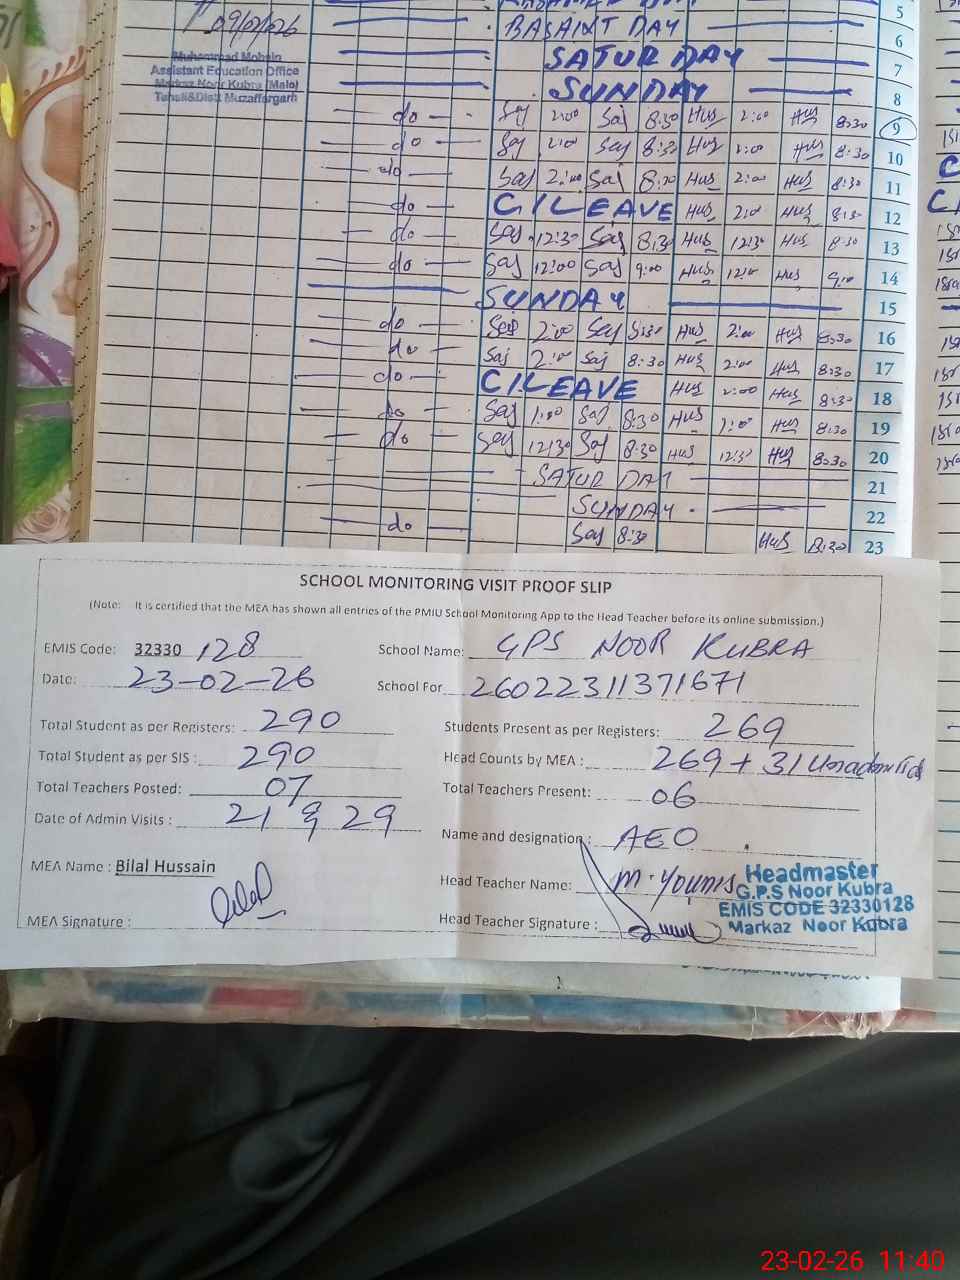 09/02/026
Muhammad Mohsin
Assistant Education Office
Markaz Noor Kubra (Male)
Tehsil&Distt Muzaffargarh
5
BASAINT DAY 6
SATUR DAY 7
SUNDAY 8
do Saj 2:00 Saj 8:30 Hus 2:00 Hus 8:30 9
do Saj 2:00 Saj 8:30 Hus 2:00 Hus 8:30 10
do Saj 2:00 Saj 8:30 Hus 2:00 Hus 8:30 11
do C/LEAVE Hus 2:00 Hus 8:30 12
do Saj 12:30 Saj 8:30 Hus 12:30 Hus 8:30 13
do Saj 12:00 Saj 9:00 Hus 12:00 Hus 9:00 14
SUNDAY 15
do Saj 2:00 Saj 8:30 Hus 2:00 Hus 8:30 16
do Saj 2:00 Saj 8:30 Hus 2:00 Hus 8:30 17
do C/LEAVE Hus 2:00 Hus 8:30 18
do Saj 1:00 Saj 8:30 Hus 1:00 Hus 8:30 19
do Saj 12:30 Saj 8:30 Hus 12:30 Hus 8:30 20
SATUR DAY 21
SUNDAY 22
do Saj 8:30 Hus 8:30 23
SCHOOL MONITORING VISIT PROOF SLIP
(Note: It is certified that the MEA has shown all entries of the PMIU School Monitoring App to the Head Teacher before its online submission.)
EMIS Code: 32330 128 School Name: GPS NOOR KUBRA
Date: 23-02-26 School For 26022311371671
Total Student as per Registers: 290 Students Present as per Registers: 269
Total Student as per SIS : 290 Head Counts by MEA : 269 + 31 Unadmitted
Total Teachers Posted: 07 Total Teachers Present: 06
Date of Admin Visits : 21 & 29 Name and designation : AEO
MEA Name : Bilal Hussain Head Teacher Name: M. Younis
MEA Signature : Head Teacher Signature :
Headmaster
G.P.S Noor Kubra
EMIS CODE 32330128
Markaz Noor Kubra
23-02-26 11:40